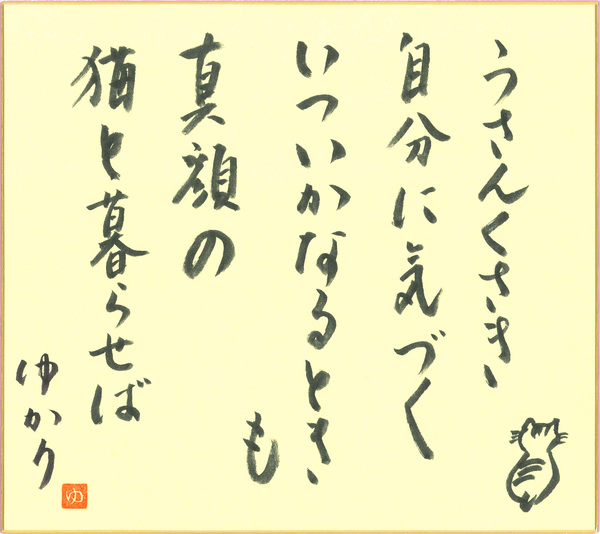 うさんくさき
自分に気づく
いついかなるときも
真顔の
猫と暮らせば
ゆかり
ゆ